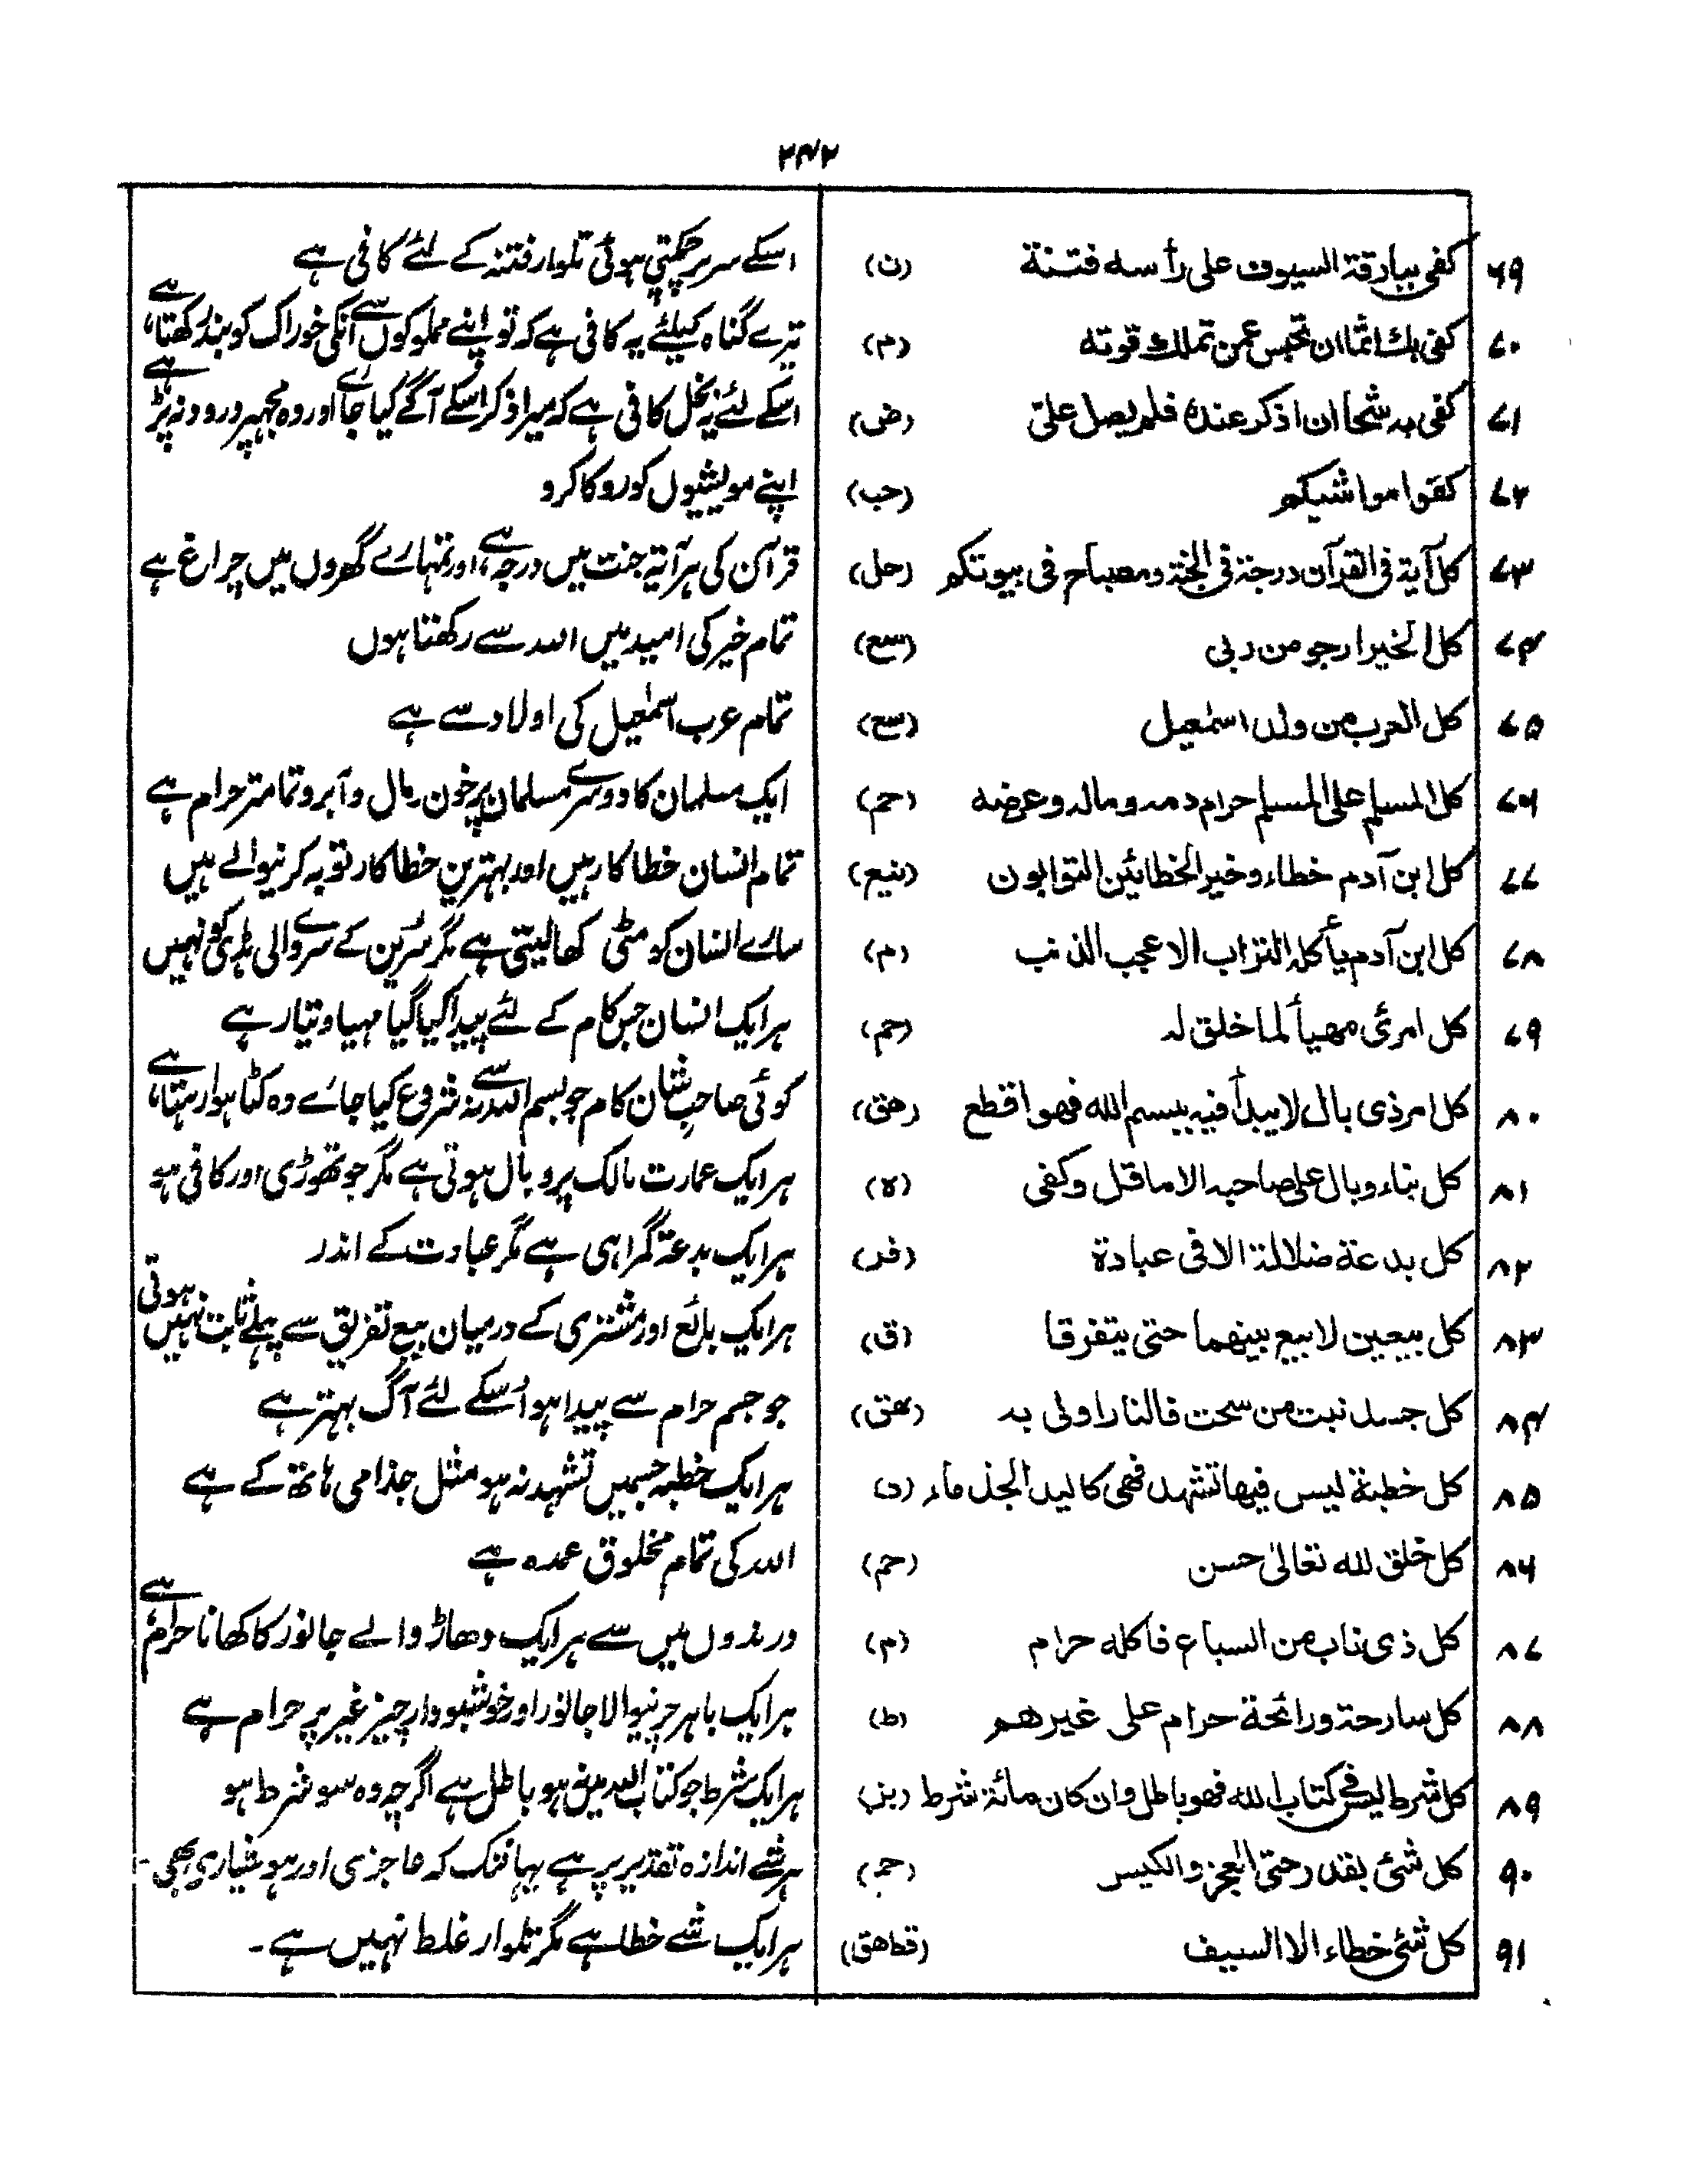 ۲۴۲
۶۹ کفی ببارقة السیوف علی رأسه فتنة (ن) اسکے سر پر چمکتی ہوئی تلوار فتنہ کے لئے کافی ہے
۷۰ کفی بك اثما ان تحبس عمن تملك قوته (م) تیرے گناہ کیلئے یہ کافی ہے کہ تو اپنے مملوکوں سے انکی خوراک کو بند رکھتا ہے
۷۱ کفی به شحا ان اذکر عنده فلم یصل علیّ (ض) اسکے لئے یہ بخل کافی ہے کہ میرا ذکر اسکے آگے کیا جائے اور وہ مجھپر درود نہ پڑے
۷۲ کفوا مواشیکم (حب) اپنے مویشیوں کو روکا کرو
۷۳ کل آیة فی القرآن درجة فی الجنة ومصباح فی بیوتکم (حل) قرآن کی ہر آیۃ جنت میں درجہ ہے، اور تمہارے گھروں میں چراغ ہے
۷۴ کل الخیر ارجو من ربی (سع) تمام خیر کی امید میں اللہ سے رکھتا ہوں
۷۵ کل العرب من ولد اسمٰعیل (سع) تمام عرب اسمٰعیل کی اولاد سے ہے
۷۶ کل المسلم علی المسلم حرام دمه وماله وعرضه (حم) ایک مسلمان کا دوسرے مسلمان پر خون، مال و آبرو تمامتر حرام ہے
۷۷ کل ابن آدم خطاء وخیر الخطائین التوابون (بنیع) تمام انسان خطا کار ہیں اور بہترین خطا کار توبہ کرنیوالے ہیں
۷۸ کل ابن آدم یأکله التراب الا عجب الذنب (م) سارے انسان کو مٹی کھا لیتی ہے مگر سرین کے سرے والی ہڈی کو نہیں
۷۹ کل امرئ مهیأ لما خلق له (حم) ہر ایک انسان جس کام کے لئے پیدا کیا گیا مہیا و تیار ہے
۸۰ کل امر ذی بال لا یبدأ فیه ببسم الله فهو اقطع (هق) کوئی صاحبِ شان کام جو بسم اللہ سے نہ شروع کیا جائے وہ کٹا ہوا رہتا ہے
۸۱ کل بناء وبال علی صاحبه الا ما قل وکفی (ه) ہر ایک عمارت مالک پر وبال ہوتی ہے مگر جو تھوڑی اور کافی ہو
۸۲ کل بدعة ضلالة الا فی عبادة (فر) ہر ایک بدعۃ گمراہی ہے مگر عبادت کے اندر
۸۳ کل بیعین لا بیع بینهما حتی یتفرقا (ق) ہر ایک بائع اور مشتری کے درمیان بیع تفریق سے پہلے ثابت نہیں ہوتی
۸۴ کل جسد نبت من سحت فالنار اولی به (هق) جو جسم حرام سے پیدا ہوا اُسکے لئے آگ بہتر ہے
۸۵ کل خطبة لیس فیها تشهد فهی کالید الجذماء (د) ہر ایک خطبہ جسمیں تشہد نہ ہو مثل جذامی ہاتھ کے ہے
۸۶ کل خلق لله تعالیٰ حسن (حم) اللہ کی تمام مخلوق عمدہ ہے
۸۷ کل ذی ناب من السباع فاکله حرام (م) درندوں میں سے ہر ایک دھاڑ والے جانور کا کھانا حرام ہے
۸۸ کل سارحة ورائحة حرام علی غیرهم (ط) ہر ایک باہر چرنیوالا جانور اور خوشبودار چیز غیر پر حرام ہے
۸۹ کل شرط لیس فی کتاب الله فهو باطل وان کان مائة شرط (بز) ہر ایک شرط جو کتاب اللہ میں نہ ہو باطل ہے اگرچہ وہ سو شرط ہو
۹۰ کل شئ بقدر حتی العجز والکیس (حم) ہر شے اندازہ تقدیر پر ہے یہانتک کہ عاجزی اور ہوشیاری بھی ۔
۹۱ کل شئ خطاء الا السیف (قط هق) ہر ایک شے خطا ہے مگر تلوار غلط نہیں ہے ۔